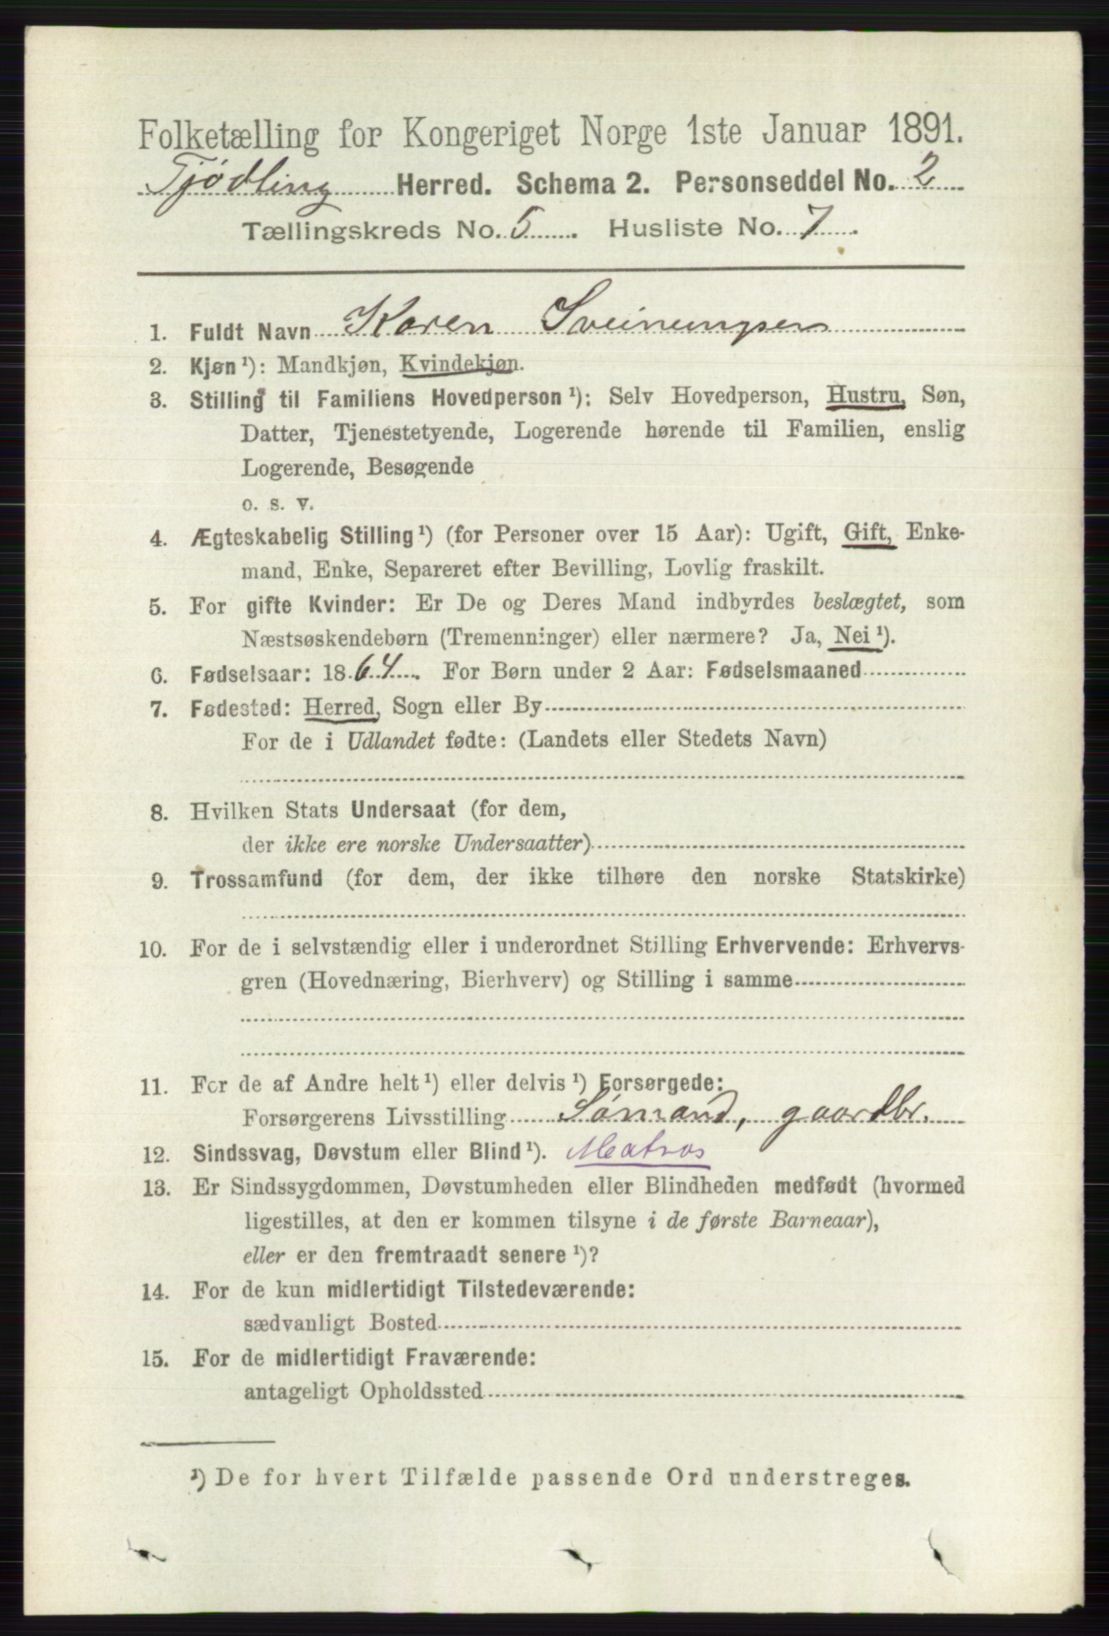 Folketælling for Kongeriget Norge 1ste Januar 1891.
Tjödling Herred. Schema 2. Personseddel No. 2
Tællingskreds No. 5. Husliste No. 7.
1. Fuldt Navn Karen Sveinungsen
2. Kjøn ¹): Mandkjøn, Kvindekjøn.
3. Stilling til Familiens Hovedperson ¹): Selv Hovedperson, Hustru, Søn,
Datter, Tjenestetyende, Logerende hørende til Familien, enslig
Logerende, Besøgende
o. s. v.
4. Ægteskabelig Stilling ¹) (for Personer over 15 Aar): Ugift, Gift, Enke-
mand, Enke, Separeret efter Bevilling, Lovlig fraskilt.
5. For gifte Kvinder: Er De og Deres Mand indbyrdes beslægtet, som
Næstsøskendebørn (Tremenninger) eller nærmere? Ja, Nei ¹).
6. Fødselsaar: 1864. For Børn under 2 Aar: Fødselsmaaned
7. Fødested: Herred, Sogn eller By
For de i Udlandet fødte: (Landets eller Stedets Navn)
8. Hvilken Stats Undersaat (for dem,
der ikke ere norske Undersaatter)
9. Trossamfund (for dem, der ikke tilhøre den norske Statskirke)
10. For de i selvstændig eller i underordnet Stilling Erhvervende: Erhvervs-
gren (Hovednæring, Bierhverv) og Stilling i samme
11. For de af Andre helt ¹) eller delvis ¹) Forsørgede:
Forsørgerens Livsstilling Sömand, gaardbr.
12. Sindssvag, Døvstum eller Blind ¹). Matros
13. Er Sindssygdommen, Døvstumheden eller Blindheden medfødt (hvormed
ligestilles, at den er kommen tilsyne i de første Barneaar),
eller er den fremtraadt senere ¹)?
14. For de kun midlertidigt Tilstedeværende:
sædvanligt Bosted
15. For de midlertidigt Fraværende:
antageligt Opholdssted
¹) De for hvert Tilfælde passende Ord understreges.